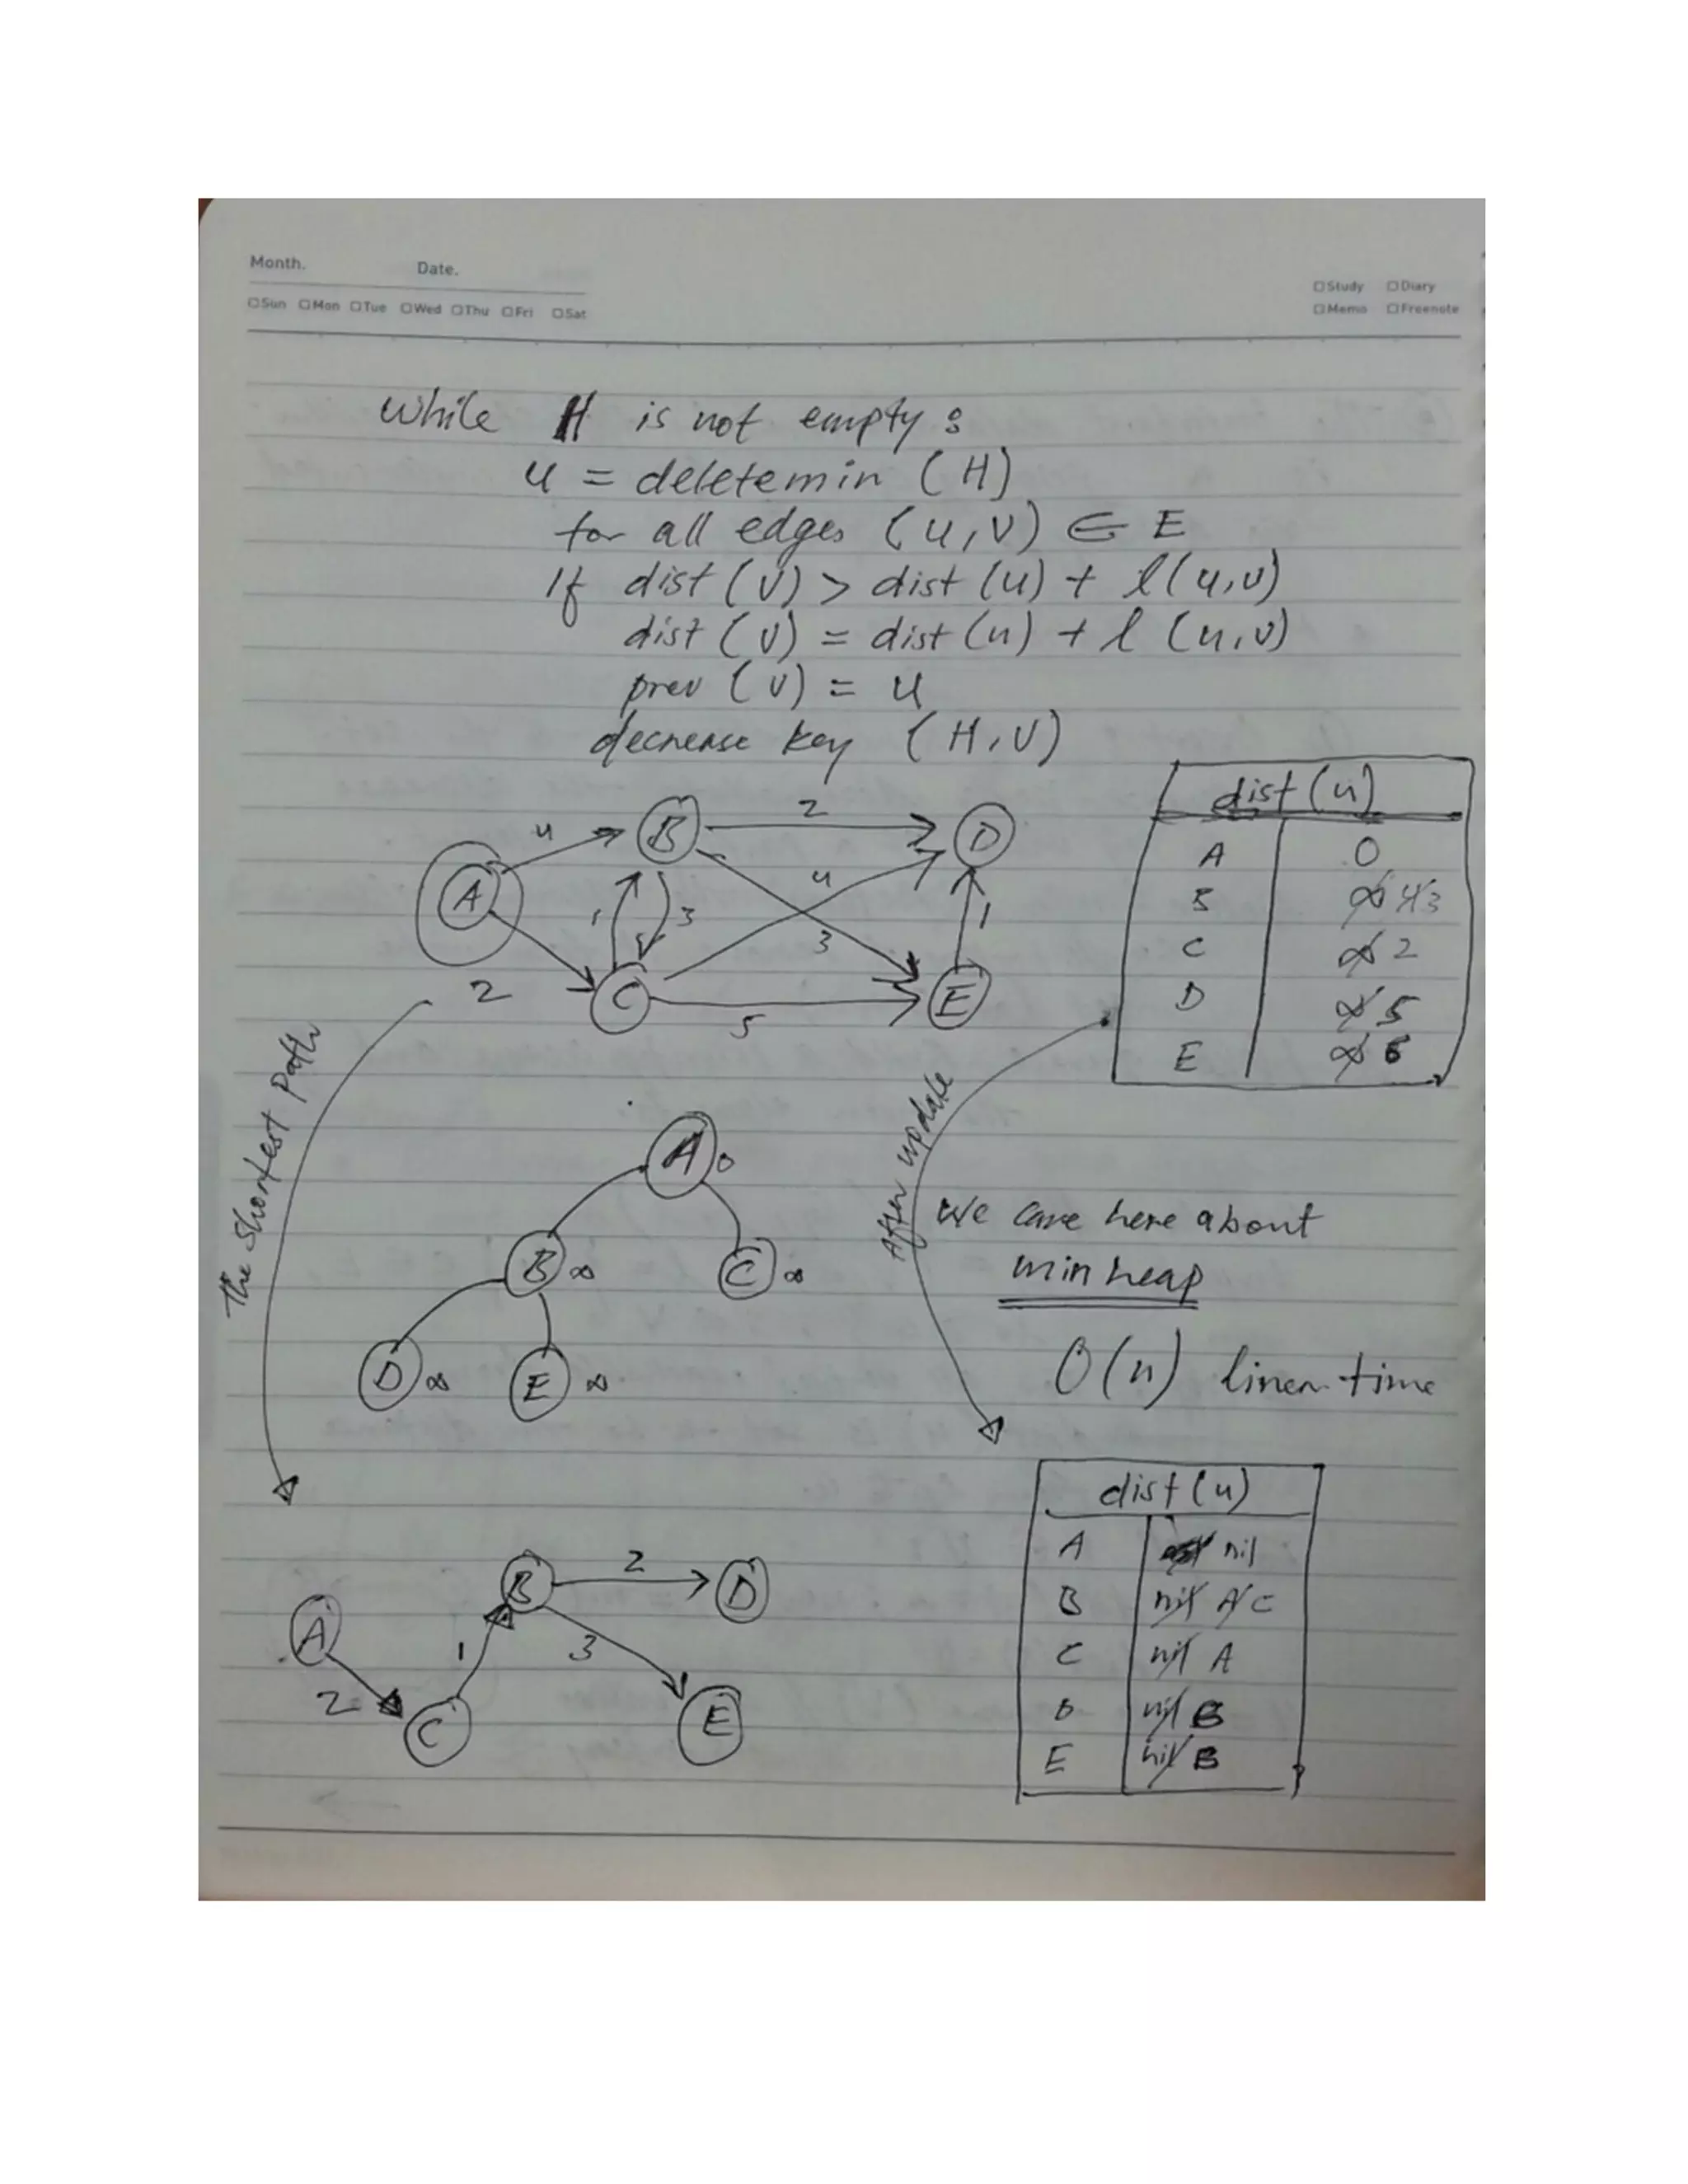 Month. Date.
Sun Mon Tue Wed Thu Fri Sat
Study Diary
Memo Freenote
while H is not empty:
u = deletemin (H)
for all edges (u,v) ∈ E
If dist (v) > dist (u) + l(u,v)
dist (v) = dist (u) + l (u,v)
prev (v) = u
decrease key (H,v)
4 B 2 D
A 1 3 4 3 1
2 C 5 E
dist (u)
A 0
B ∞ 4 3
C ∞ 2
D ∞ 5
E ∞ 6
The shortest path
After update
A 0
B ∞ C ∞
D ∞ E ∞
We care here about
min heap
O(n) linear time
B 2 D
A 1 3
2 C E
dist (u)
A nil
B nil A C
C nil A
D nil B
E nil B